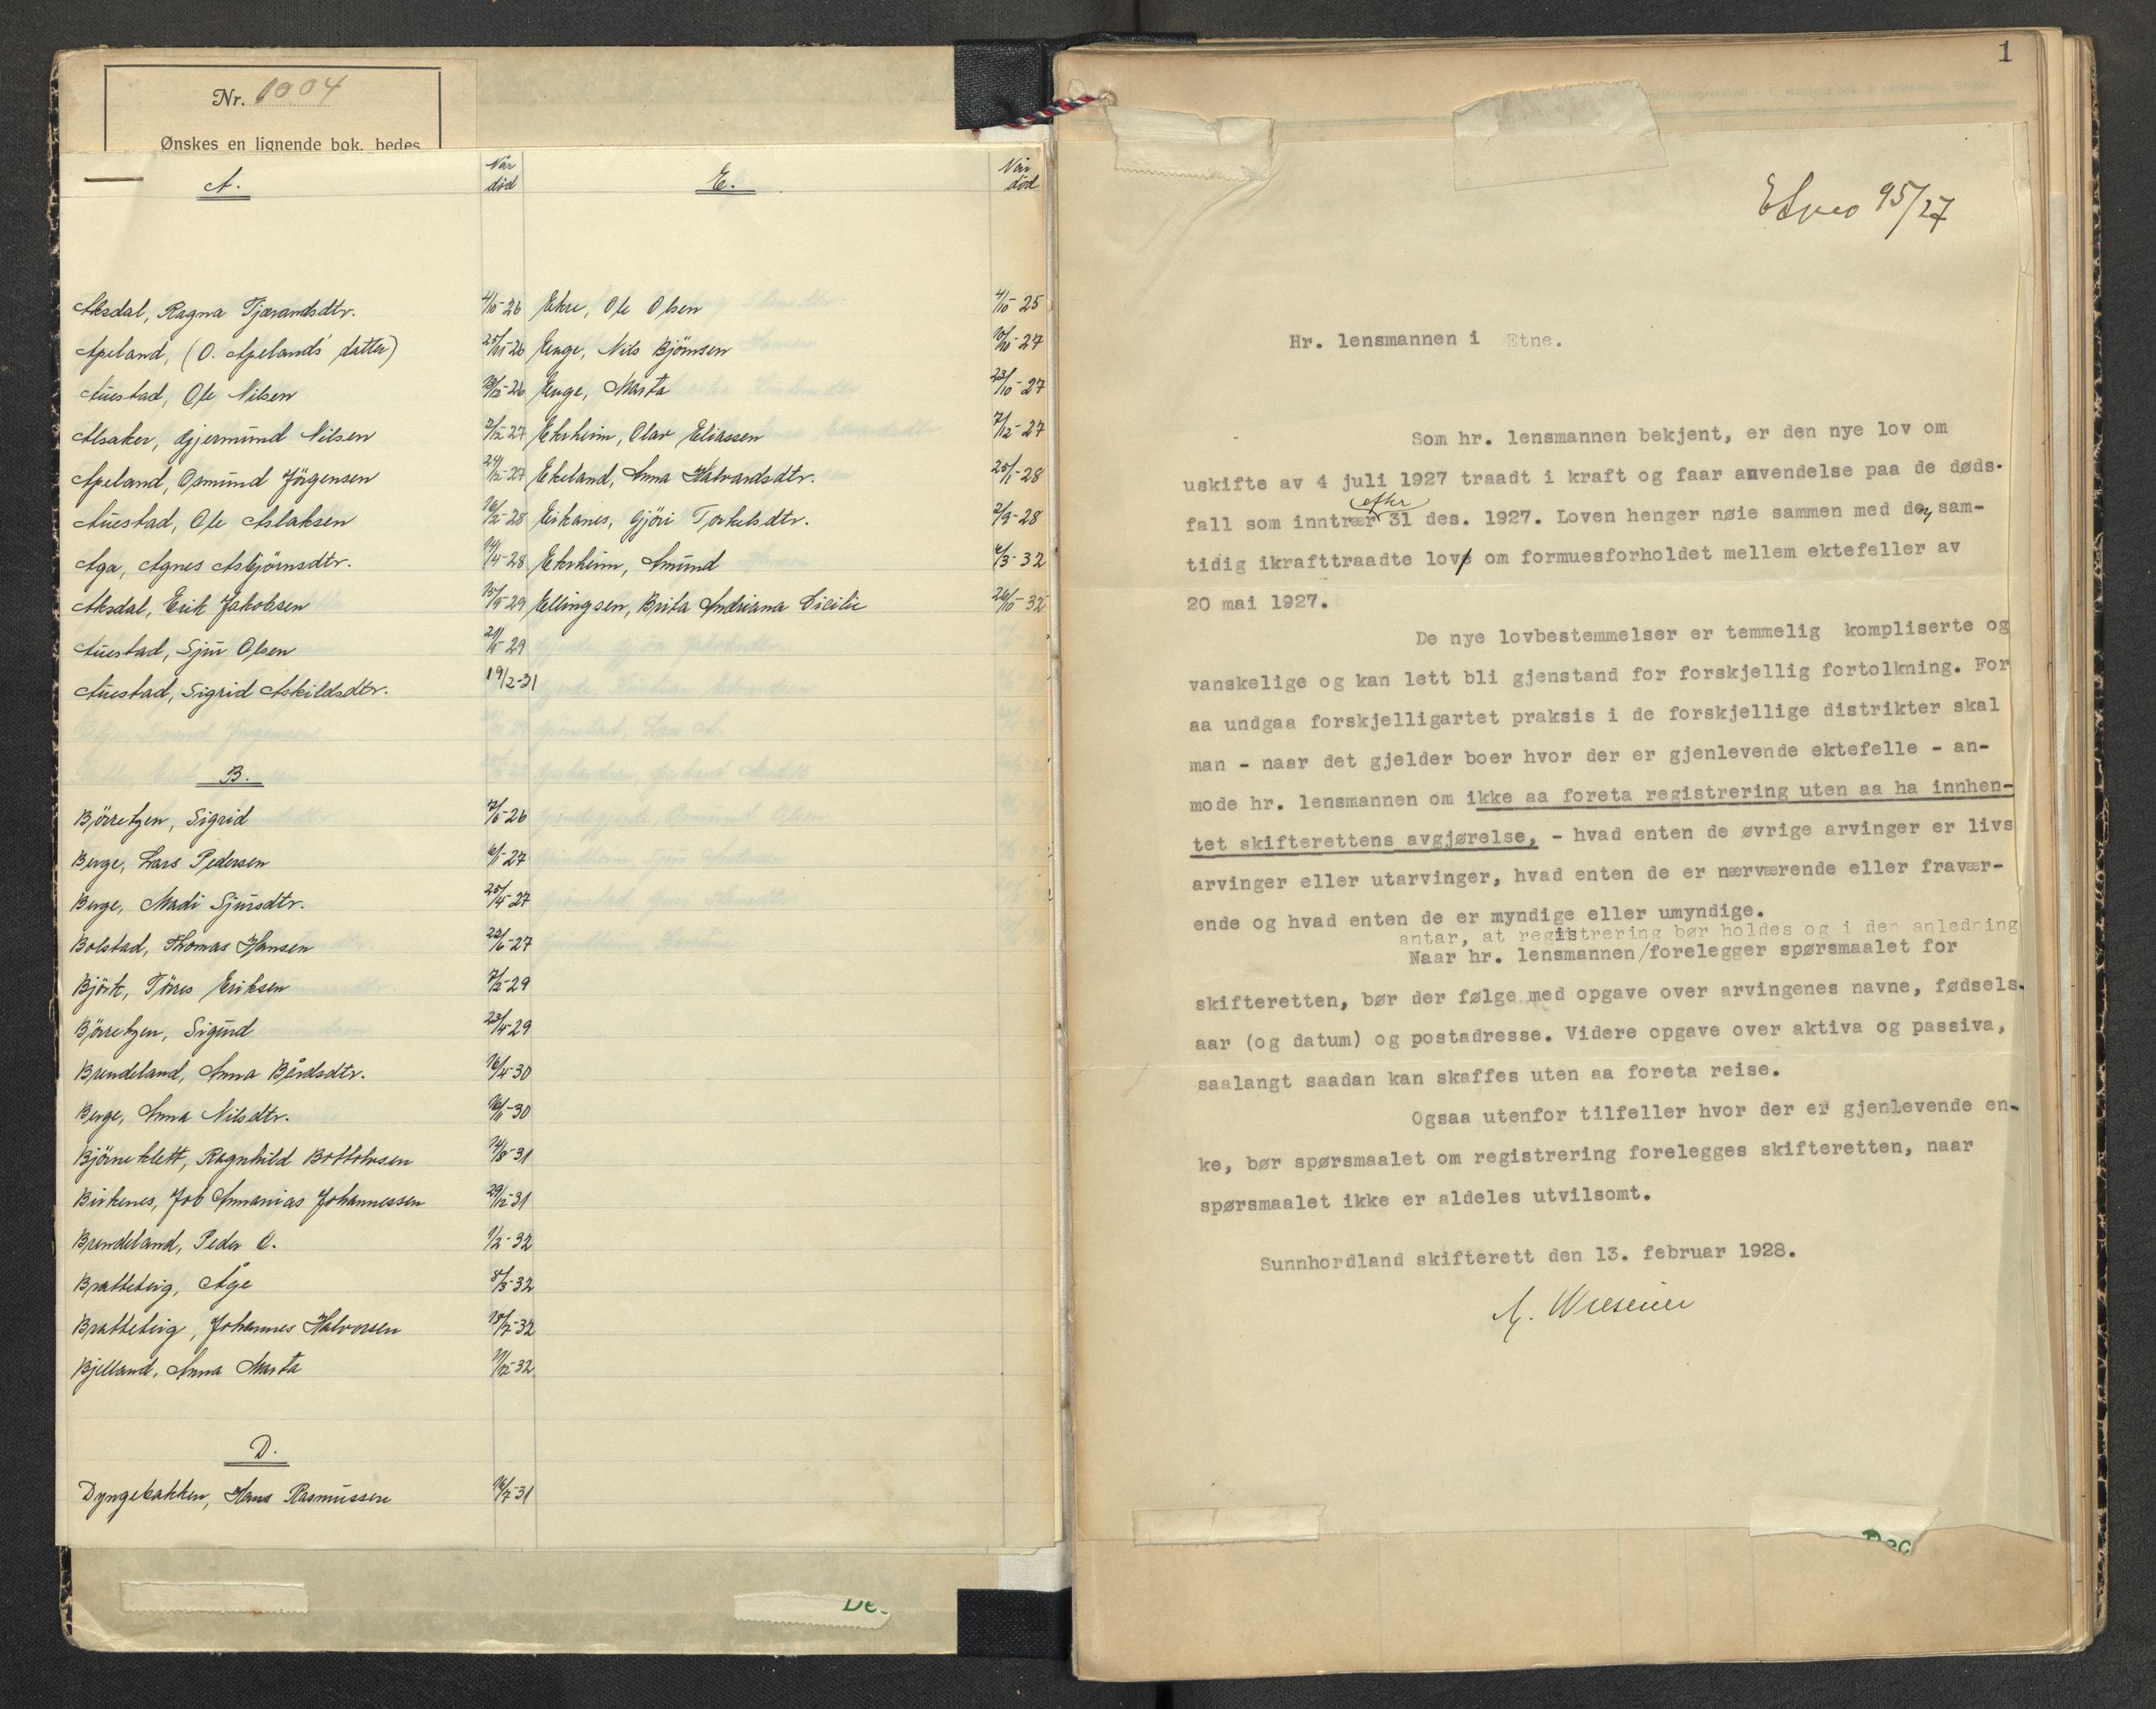 Nr. 1004
Ønskes en lignende bok, bedes
A.
Når død
Aksdal, Ragna Tjærandsdtr. 4/10-26
Apeland, (O. Apelands datter) 25/11-26
Auestad, Ole Nilsen 13/12-26
Alsaker, Gjermund Nilsen 2/12-27
Apeland, Osmund Jörgensen 24/12-27
Auestad, Ole Aslaksen 16/2-28
Aga, Agnes Asbjörnsdtr. 14/4-28
Aksdal, Erik Jakobsen 15/9-29
Auestad, Sjur Olsen
Auestad, Sigrid Askildsdtr. 19/2-31
B.
Börretzen, Sigrid
Berge, Lars Pedersen 6/1-27
Berge, Madi Sjursdtr. 25/4-27
Bolstad, Thomas Hansen 22/6-27
Björk, Törres Eriksen 7/2-29
Börretzen, Sigurd 23/4-29
Brendeland, Anna Bårdsdtr. 16/4-30
Berge, Anna Nilsdtr. 16/11-30
Björneklett, Ragnhild Bottolvsen 14/8-31
Birkenes, Job Annanias Johannessen 29/12-31
Brendeland, Peder O. 1/2-32
Bratteteig, Åge 8/3-32
Bratteteig, Johannes Halvorsen 18/7-32
Bjelland, Anna Marta
D.
Dyngebakken, Hans Rasmussen 16/7-31
E.
Når død
Ekre, Ole Olsen 4/10-25
Enge, Nils Björnsen 10/10-27
Enge, Marta 23/10-27
Ekrheim, Olav Eliassen 7/12-27
Ekeland, Anna Halvardsdtr. 25/1-28
Eikanes, Gjöri Torkelsdtr. 2/9-28
Ekrheim, Amund 6/3-32
Ellingsen, Brita Andriana Cicilie 26/10-32
De
1
Etne 95/27
Hr. lensmannen i Etne.
Som hr. lensmannen bekjent, er den nye lov om
uskifte av 4 juli 1927 traadt i kraft og faar anvendelse paa de døds-
efter
fall som inntrær 31 des. 1927. Loven henger nøie sammen med den sam-
tidig ikrafttraadte lov om formuesforholdet mellem ektefeller av
20 mai 1927.
De nye lovbestemmelser er temmelig kompliserte og
vanskelige og kan lett bli gjenstand for forskjellig fortolkning. For
aa undgaa forskjelligartet praksis i de forskjellige distrikter skal
man - naar det gjelder boer hvor der er gjenlevende ektefelle - an-
mode hr. lensmannen om ikke aa foreta registrering uten aa ha innhen-
tet skifterettens avgjørelse, - hvad enten de øvrige arvinger er livs
arvinger eller utarvinger, hvad enten de er nærværende eller fravær-
ende og hvad enten de er myndige eller umyndige.
antar, at registrering bør holdes og i den anledning
Naar hr. lensmannen/forelegger spørsmaalet for
skifteretten, bør der følge med opgave over arvingenes navne, fødsels-
aar (og datum) og postadresse. Videre opgave over aktiva og passiva,
saalangt saadan kan skaffes uten aa foreta reise.
Ogsaa utenfor tilfeller hvor der er gjenlevende en-
ke, bør spørsmaalet om registrering forelegges skifteretten, naar
spørsmaalet ikke er aldeles utvilsomt.
Sunnhordland skifterett den 13. februar 1928.
Wiesener
Dec